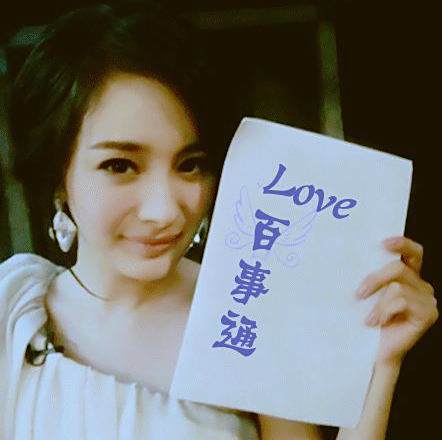 Love
百
事
通